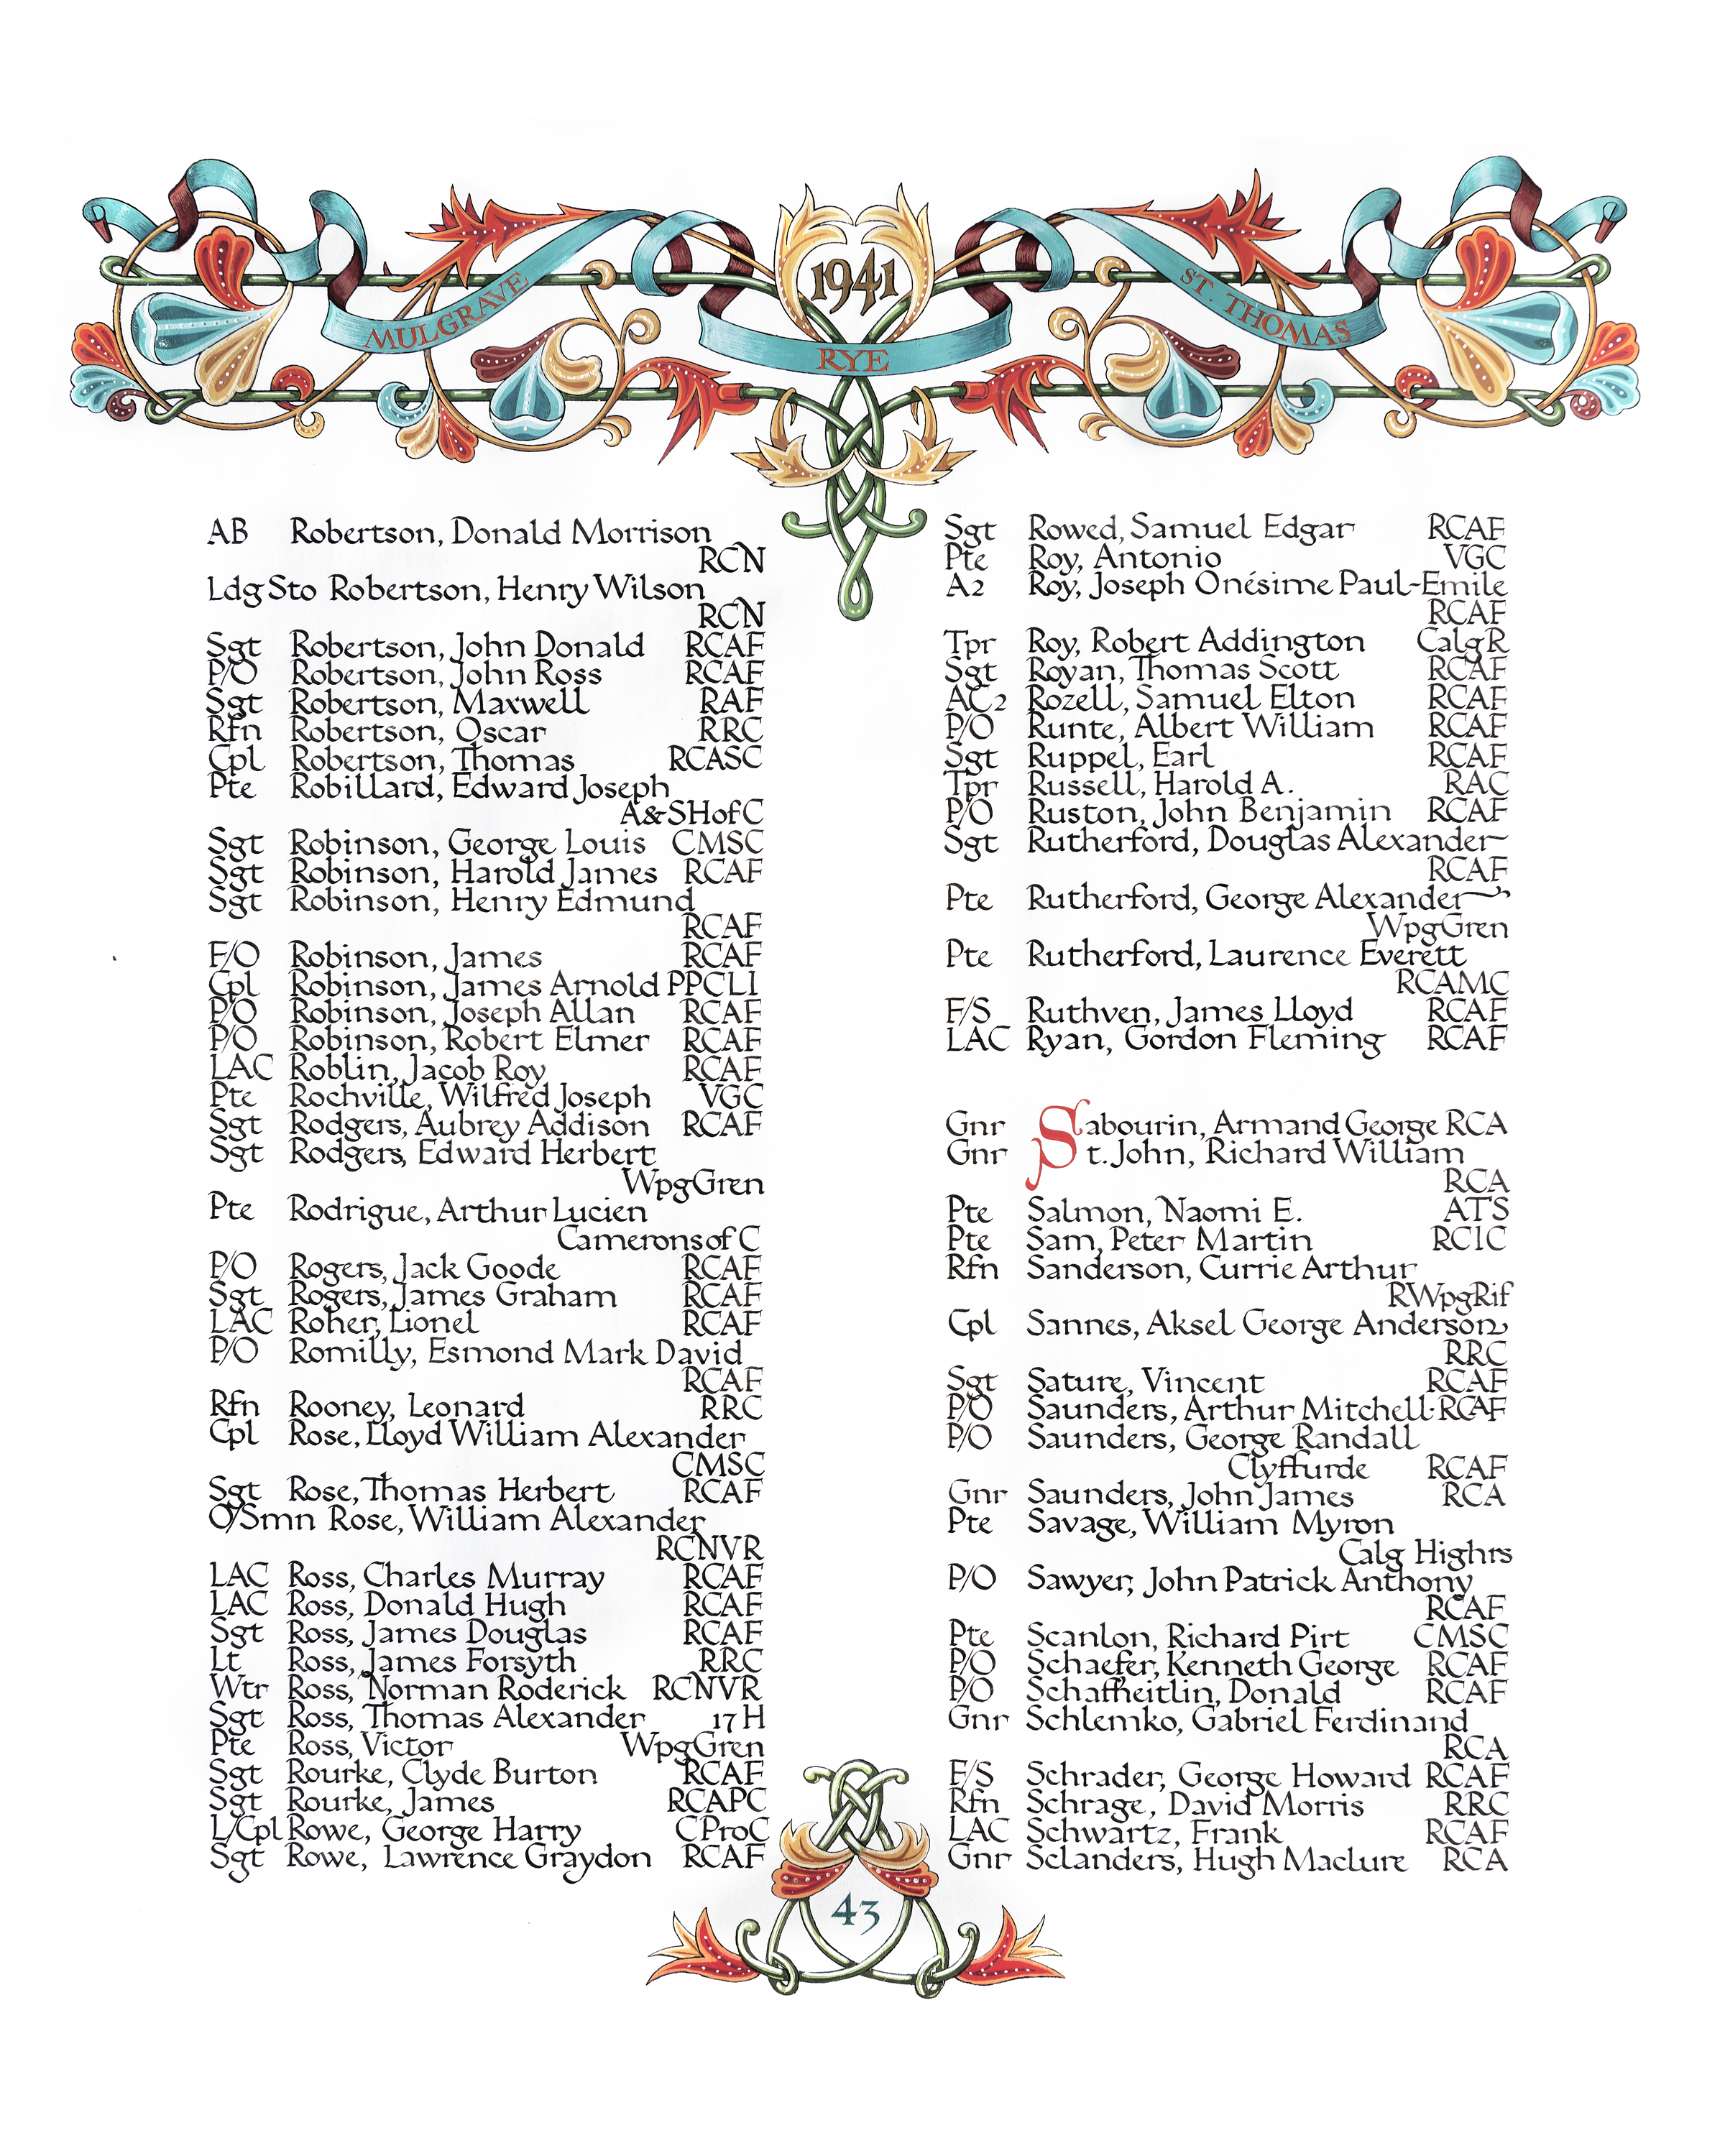 1941
MULGRAVE
RYE
ST. THOMAS
AB Robertson, Donald Morrison
RCN
Ldg Sto Robertson, Henry Wilson
RCN
Sgt Robertson, John Donald RCAF
P/O Robertson, John Ross RCAF
Sgt Robertson, Maxwell RAF
Rfn Robertson, Oscar RRC
Cpl Robertson, Thomas RCASC
Pte Robillard, Edward Joseph
A&SHofC
Sgt Robinson, George Louis CMSC
Sgt Robinson, Harold James RCAF
Sgt Robinson, Henry Edmund
RCAF
F/O Robinson, James RCAF
Cpl Robinson, James Arnold PPCLI
P/O Robinson, Joseph Allan RCAF
P/O Robinson, Robert Elmer RCAF
LAC Roblin, Jacob Roy RCAF
Pte Rochville, Wilfred Joseph VGC
Sgt Rodgers, Aubrey Addison RCAF
Sgt Rodgers, Edward Herbert
WpgGren
Pte Rodrigue, Arthur Lucien
Camerons of C
P/O Rogers, Jack Goode RCAF
Sgt Rogers, James Graham RCAF
LAC Roher, Lionel RCAF
P/O Romilly, Esmond Mark David
RCAF
Rfn Rooney, Leonard RRC
Cpl Rose, Lloyd William Alexander
CMSC
Sgt Rose, Thomas Herbert RCAF
O/Smn Rose, William Alexander
RCNVR
LAC Ross, Charles Murray RCAF
LAC Ross, Donald Hugh RCAF
Sgt Ross, James Douglas RCAF
Lt Ross, James Forsyth RRC
Wtr Ross, Norman Roderick RCNVR
Sgt Ross, Thomas Alexander 17 H
Pte Ross, Victor WpgGren
Sgt Rourke, Clyde Burton RCAF
Sgt Rourke, James RCAPC
L/Cpl Rowe, George Harry CProC
Sgt Rowe, Lawrence Graydon RCAF
Sgt Rowed, Samuel Edgar RCAF
Pte Roy, Antonio VGC
A2 Roy, Joseph Onésime Paul-Emile
RCAF
Tpr Roy, Robert Addington CalgR
Sgt Royan, Thomas Scott RCAF
AC2 Rozell, Samuel Elton RCAF
P/O Runte, Albert William RCAF
Sgt Ruppel, Earl RCAF
Tpr Russell, Harold A. RAC
P/O Ruston, John Benjamin RCAF
Sgt Rutherford, Douglas Alexander
RCAF
Pte Rutherford, George Alexander
WpgGren
Pte Rutherford, Laurence Everett
RCAMC
F/S Ruthven, James Lloyd RCAF
LAC Ryan, Gordon Fleming RCAF
Gnr Sabourin, Armand George RCA
Gnr St. John, Richard William
RCA
Pte Salmon, Naomi E. ATS
Pte Sam, Peter Martin RCIC
Rfn Sanderson, Currie Arthur
RWpgRif
Cpl Sannes, Aksel George Anderson
RRC
Sgt Sature, Vincent RCAF
P/O Saunders, Arthur Mitchell RCAF
P/O Saunders, George Randall
Clyffurde RCAF
Gnr Saunders, John James RCA
Pte Savage, William Myron
Calg Highrs
P/O Sawyer, John Patrick Anthony
RCAF
Pte Scanlon, Richard Pirt CMSC
P/O Schaefer, Kenneth George RCAF
P/O Schafheitlin, Donald RCAF
Gnr Schlemko, Gabriel Ferdinand
RCA
F/S Schrader, George Howard RCAF
Rfn Schrage, David Morris RRC
LAC Schwartz, Frank RCAF
Gnr Sclanders, Hugh Maclure RCA
43